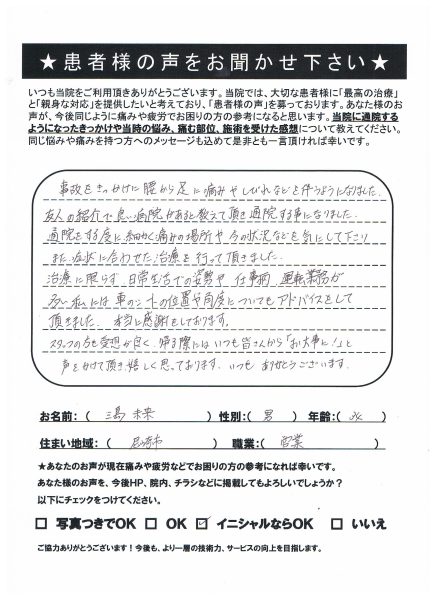 ★患者様の声をお聞かせ下さい★
いつも当院をご利用頂きありがとうございます。当院では、大切な患者様に「最高の治療」
と「親身な対応」を提供したいと考えており、「患者様の声」を募っております。あなた様のお
声が、今後同じように痛みや疲労でお困りの方の参考になると思います。当院に通院する
ようになったきっかけや当時の悩み、痛む部位、施術を受けた感想について教えてください。
同じ悩みや痛みを持つ方へのメッセージも込めて是非とも一言頂ければ幸いです。
事故をきっかけに腰から足に痛みやしびれなどを伴うようになりました。
友人の紹介で良い病院があると教えて頂き通院する事になりました。
通院をする度に細かく痛みの場所や今の状況などを気にして下さり
また症状に合わせた治療を行って頂きました。
治療に限らず日常生活での姿勢や仕事柄、運転業務が
多い私には車のシートの位置や角度についてもアドバイスをして
頂きました。本当に感謝をしております。
スタッフの方も愛想が良く、帰る際にはいつも皆さんから「お大事に!」と
声をかけて頂き嬉しく思っております。いつもありがとうございます。
お名前:( 未来 ) 性別:( 男 ) 年齢:( )
住まい地域:( 尼崎市 ) 職業:( 営業 )
★あなたのお声が現在痛みや疲労などでお困りの方の参考になれば幸いです。
あなた様のお声を、今後HP、院内、チラシなどに掲載してもよろしいでしょうか?
以下にチェックをつけてください。
□ 写真つきでOK □ OK ☑ イニシャルならOK □ いいえ
ご協力ありがとうございます!今後も、より一層の技術力、サービスの向上を目指します。